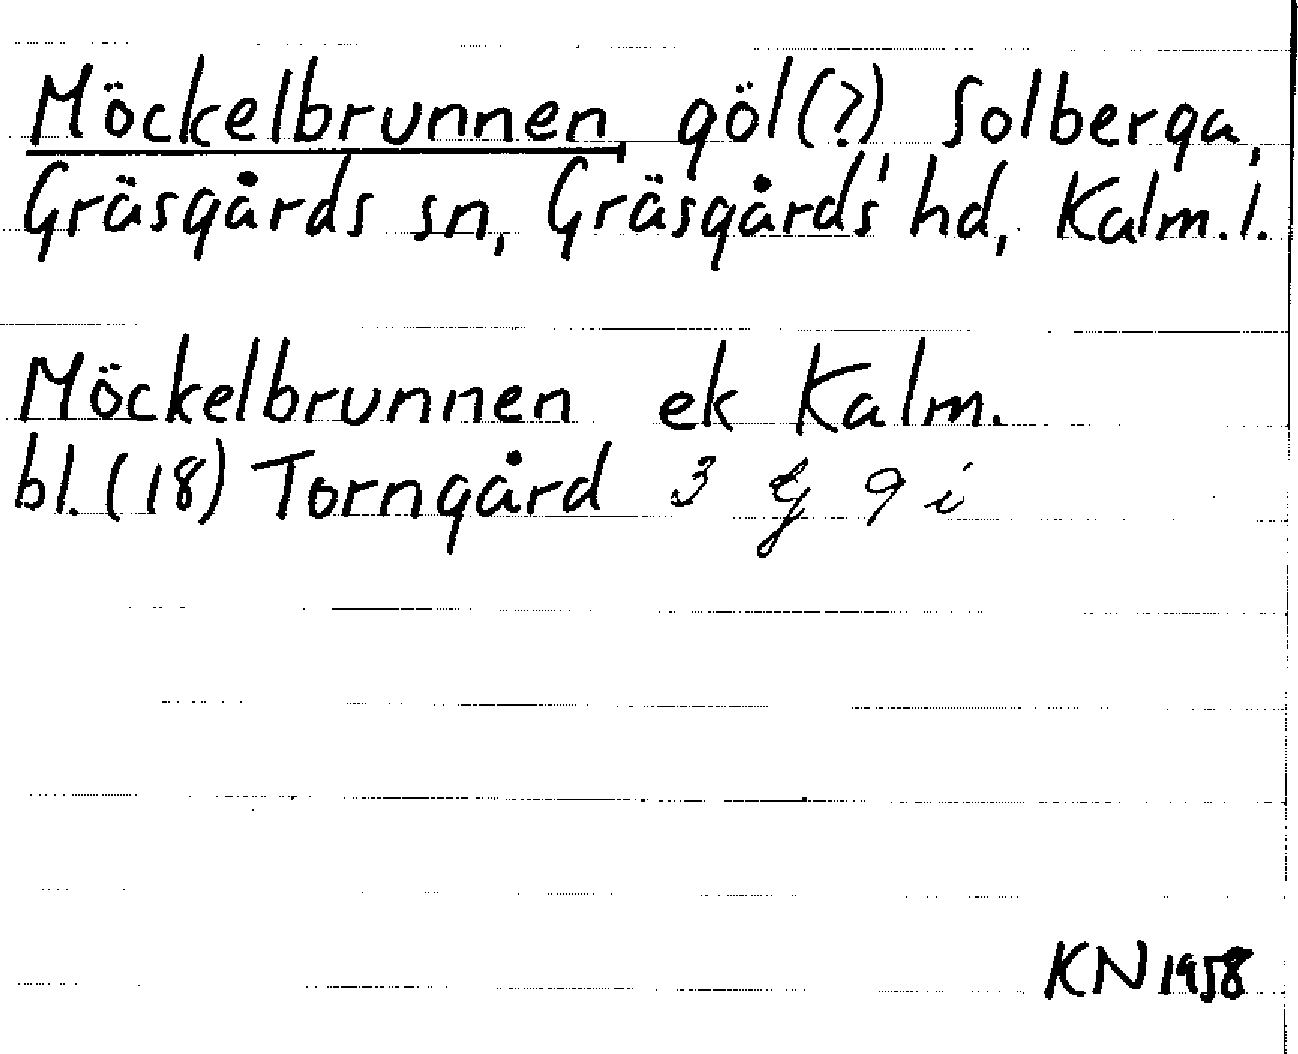 Möckelbrunnen, göl(?), Solberga,
Gräsgårds sn, Gräsgårds hd, Kalm. l.
Möckelbrunnen ek Kalm.
bl. (18) Torngård 3 G 9 i
KN 1958